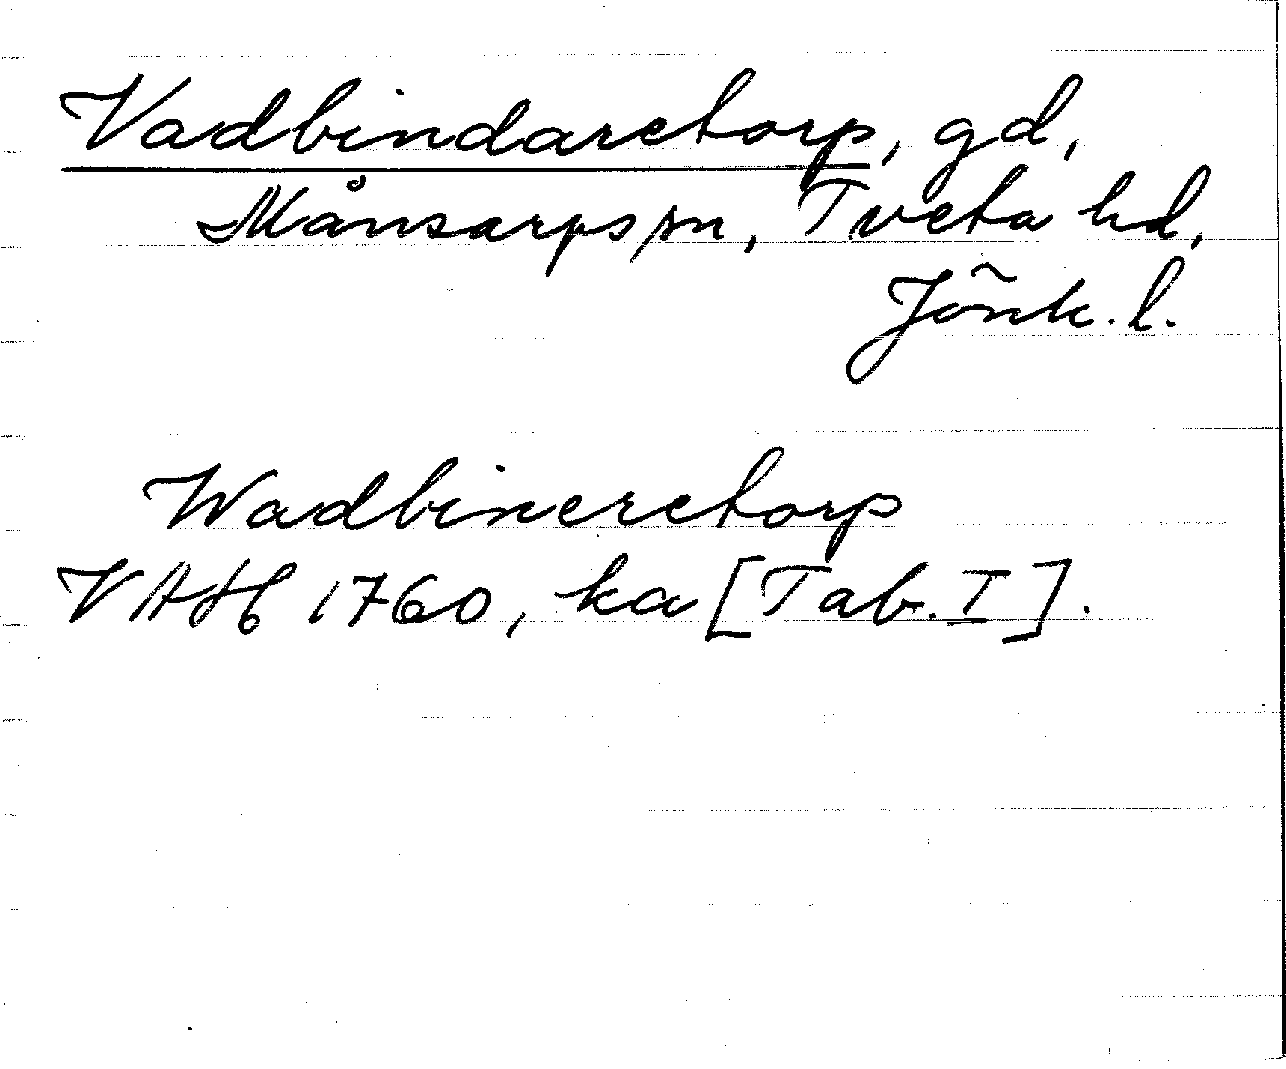 Vadbindaretorp, gd,
Månsarps sn, Tveta hd,
Jönk. l.
Wadbineretorp
VAH 1760, ka [Tab. I].